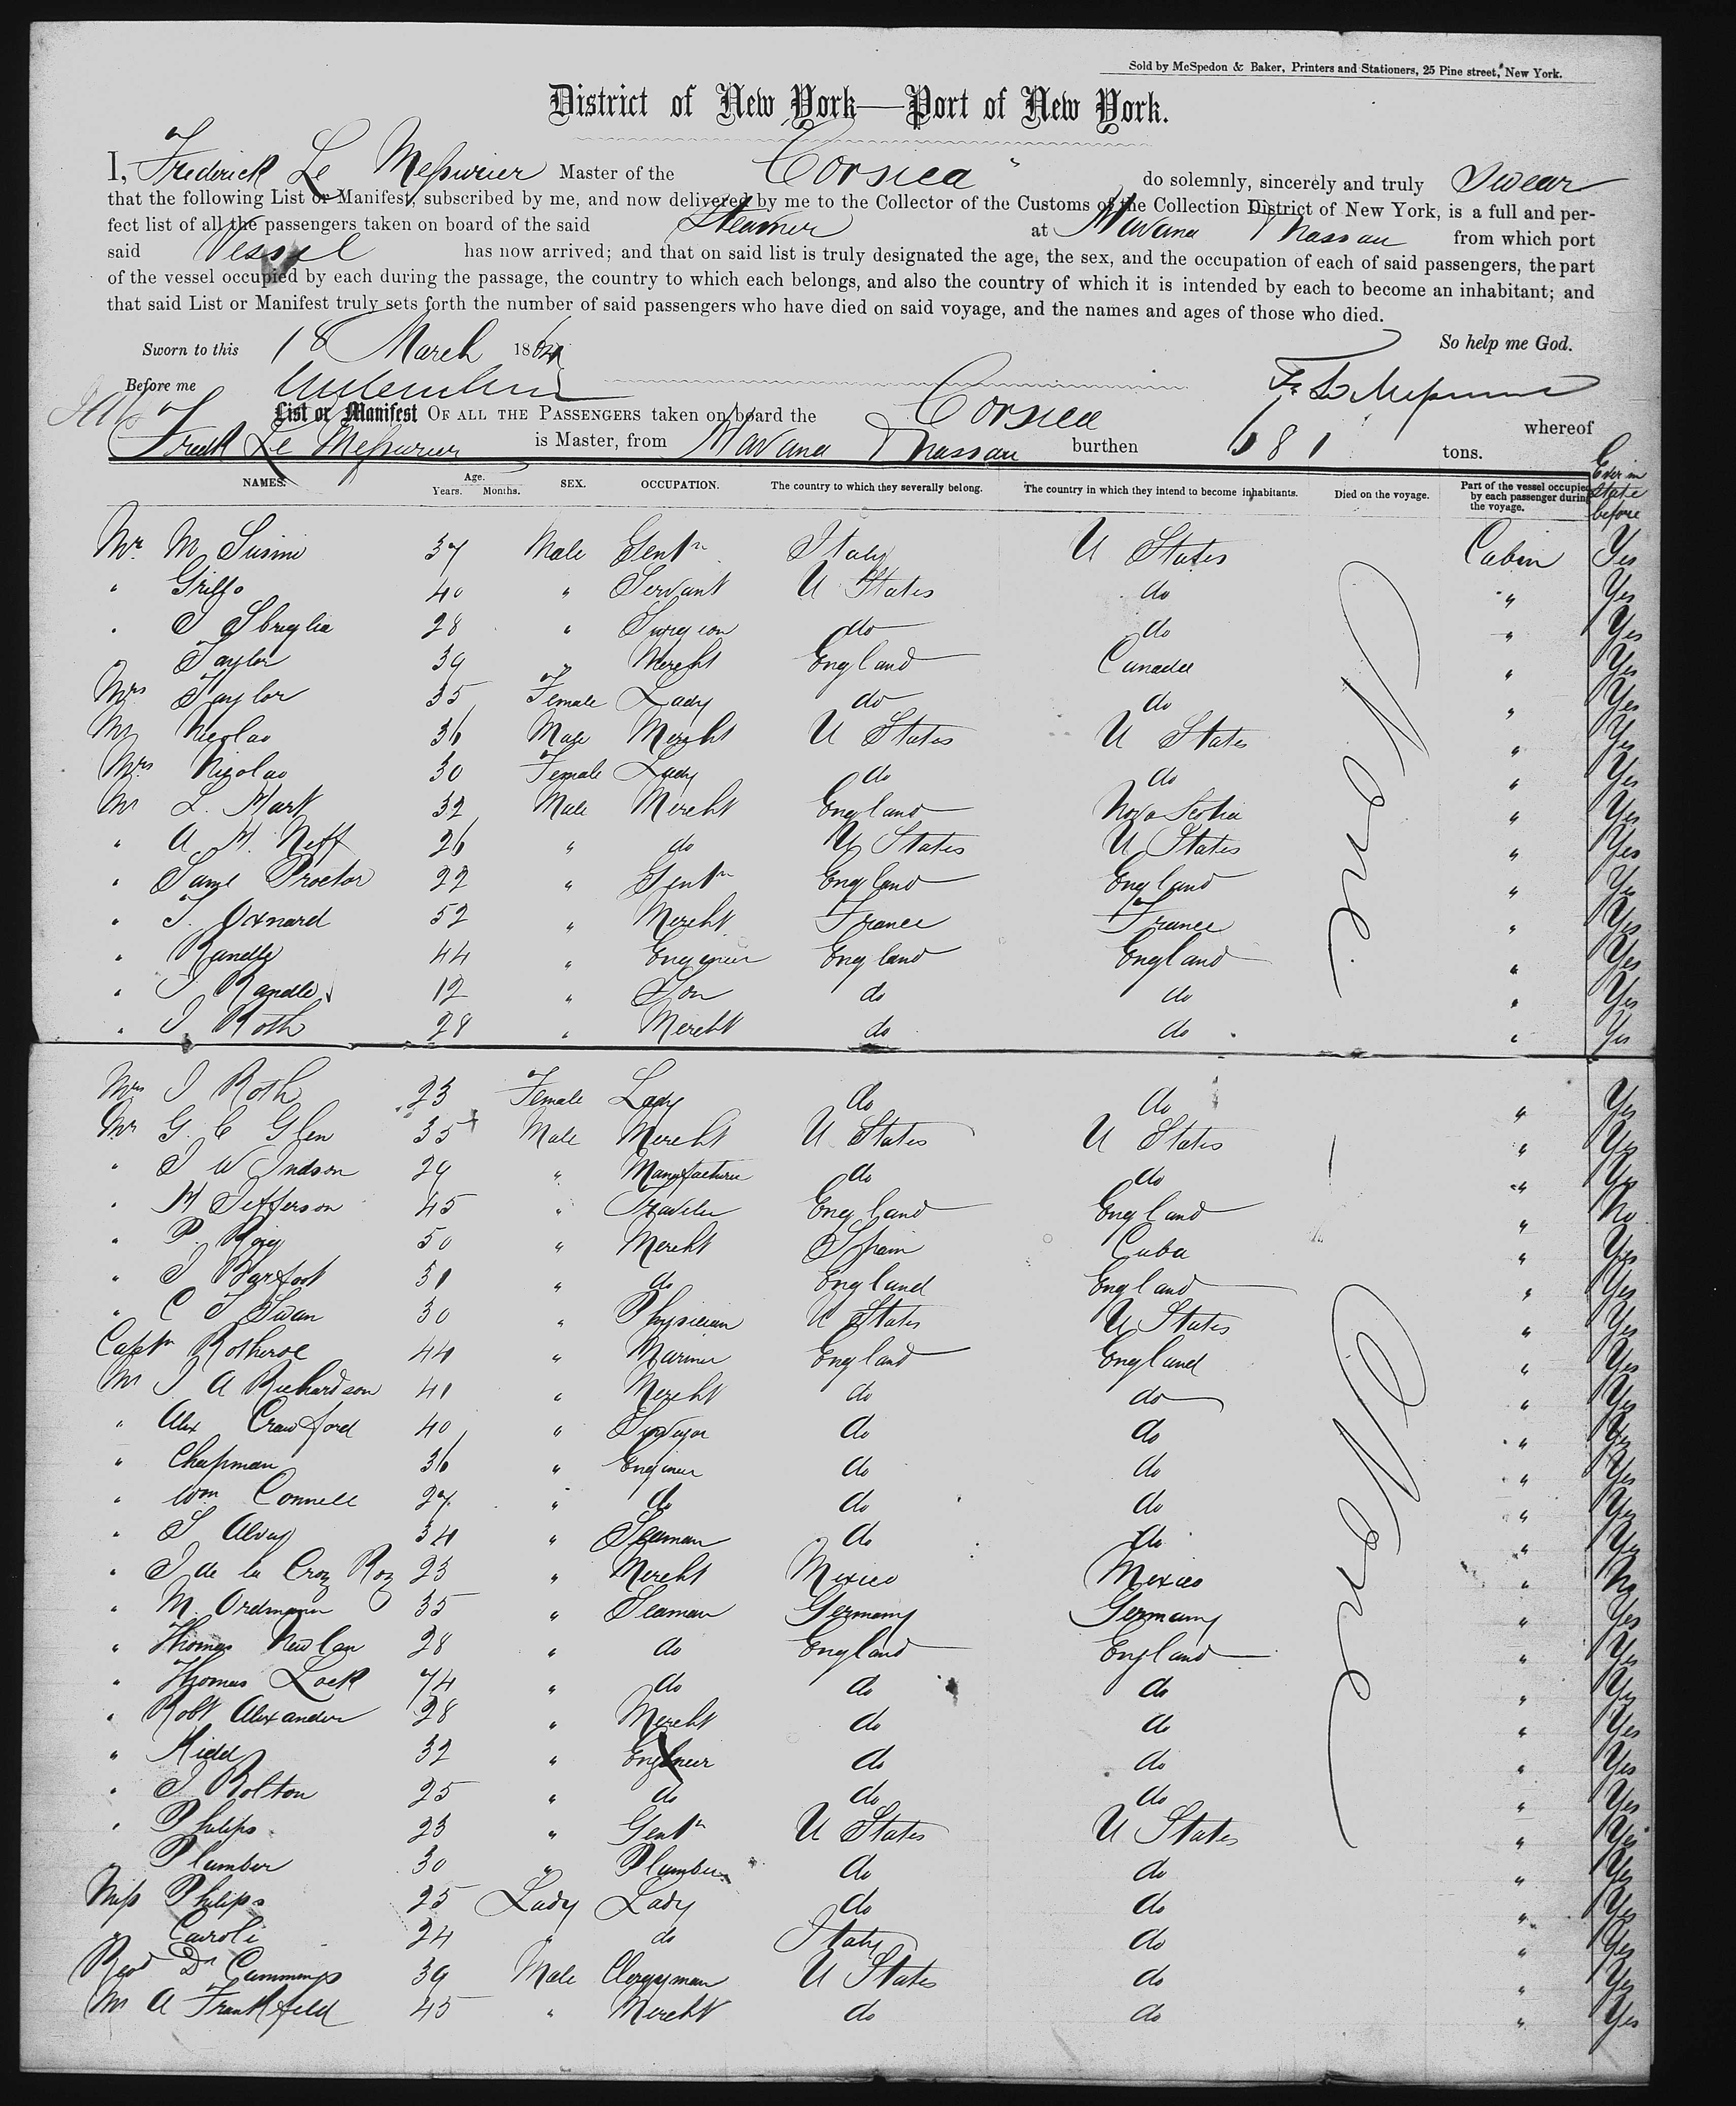 Sold by McSpedon & Baker, Printers and Stationers, 25 Pine street, New York.
District of New York—Port of New York.
I, Frederick Le Messurier Master of the "Corsica" do solemnly, sincerely and truly Swear
that the following List or Manifest, subscribed by me, and now delivered by me to the Collector of the Customs of the Collection District of New York, is a full and per-
fect list of all the passengers taken on board of the said Steamer at Havana & Nassau from which port
said Vessel has now arrived; and that on said list is truly designated the age, the sex, and the occupation of each of said passengers, the part
of the vessel occupied by each during the passage, the country to which each belongs, and also the country of which it is intended by each to become an inhabitant; and
that said List or Manifest truly sets forth the number of said passengers who have died on said voyage, and the names and ages of those who died.
Sworn to this 18 March 1864 So help me God.
Before me F. Le Messurier
List or Manifest OF ALL THE PASSENGERS taken on board the Corsica whereof
Fredk Le Messurier is Master, from Havana & Nassau burthen 681 tons.
NAMES. Age. Years. Months. SEX. OCCUPATION. The country to which they severally belong. The country in which they intend to become inhabitants. Died on the voyage. Part of the vessel occupied by each passenger during the voyage. Ever in State before
Mr. M Susini 37 Male Gentn Italy U States Cabin Yes
" Griffo 40 " Servant U States do " Yes
" J Sbriglia 28 " Surgeon do do " Yes
" Taylor 39 " Mercht England Canada " Yes
Mrs Taylor 35 Female Lady do do " Yes
Mr Nicolao 36 Male Mercht U States U States " Yes
Mrs Nicolao 30 Female Lady do do " Yes
Mr L. Hart 32 Male Mercht England Nova Scotia " Yes
" A. H. Neff 26 " do U States U States " Yes
" Saml Proctor 22 " Gentn England England " Yes
" T. Oxnard 52 " Mercht France France " Yes
" Randle 44 " Engineer England England " Yes
" J Randle 12 " Son do do " Yes
" J. Roth 28 " Mercht do do " Yes
None
Mrs J Roth 23 Female Lady do do " Yes
Mr G. C Glen 35 Male Mercht U States U States " Yes
" J W Judson 29 " Manufacturer do do " Yes
" H Jefferson 45 " Traveler England England " No
" P. Roig 50 " Mercht Spain Cuba " Yes
" J Barfoot 31 " do England England " Yes
" C T Swan 30 " Physician U States U States " Yes
Captn Rotheroe 44 " Mariner England England " Yes
Mr J A Richardson 41 " Mercht do do " Yes
" Alex Crawford 40 " Surveyor do do " Yes
" Chapman 36 " Engineer do do " Yes
" Wm Connell 27 " do do do " Yes
" S Alvay 34 " Seaman do do " Yes
" J de la Croz Roz 23 " Mercht Mexico Mexico " No
" M. Ordmann 35 " Seaman Germany Germany " Yes
" Thomas Newlan 28 " do England England " Yes
" Thomas Lock 74 " do do do " Yes
" Robt Alexander 28 " Mercht do do " Yes
" Kidd 32 " Engineer do do " Yes
" J Bolton 25 " do do do " Yes
" Philips 23 " Gentn U States U States " Yes
" Plumber 30 " Plumber do do " Yes
Miss Philips 25 Lady Lady do do " Yes
" Cairoli 24 " do Italy do " Yes
Revd Dr Cummings 39 Male Clergyman U States do " Yes
Mr A Frankfeld 45 " Mercht do do " Yes
None